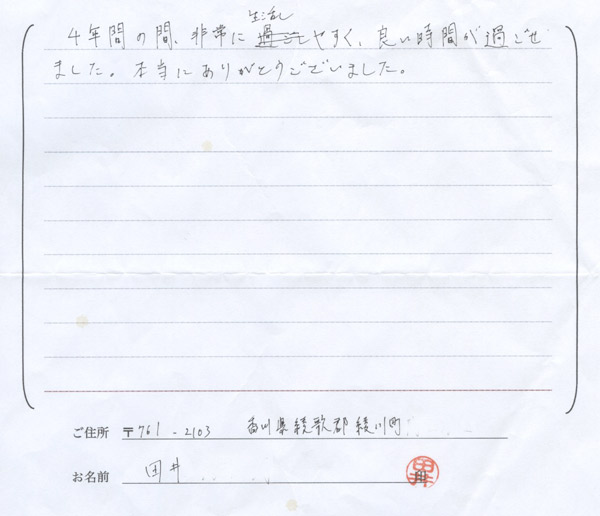 生活し
4年間の間、非常に過ごしやすく、良い時間が過ごせ
ました。本当にありがとうございました。
ご住所 〒761-2103 香川県綾歌郡綾川町
お名前 田井